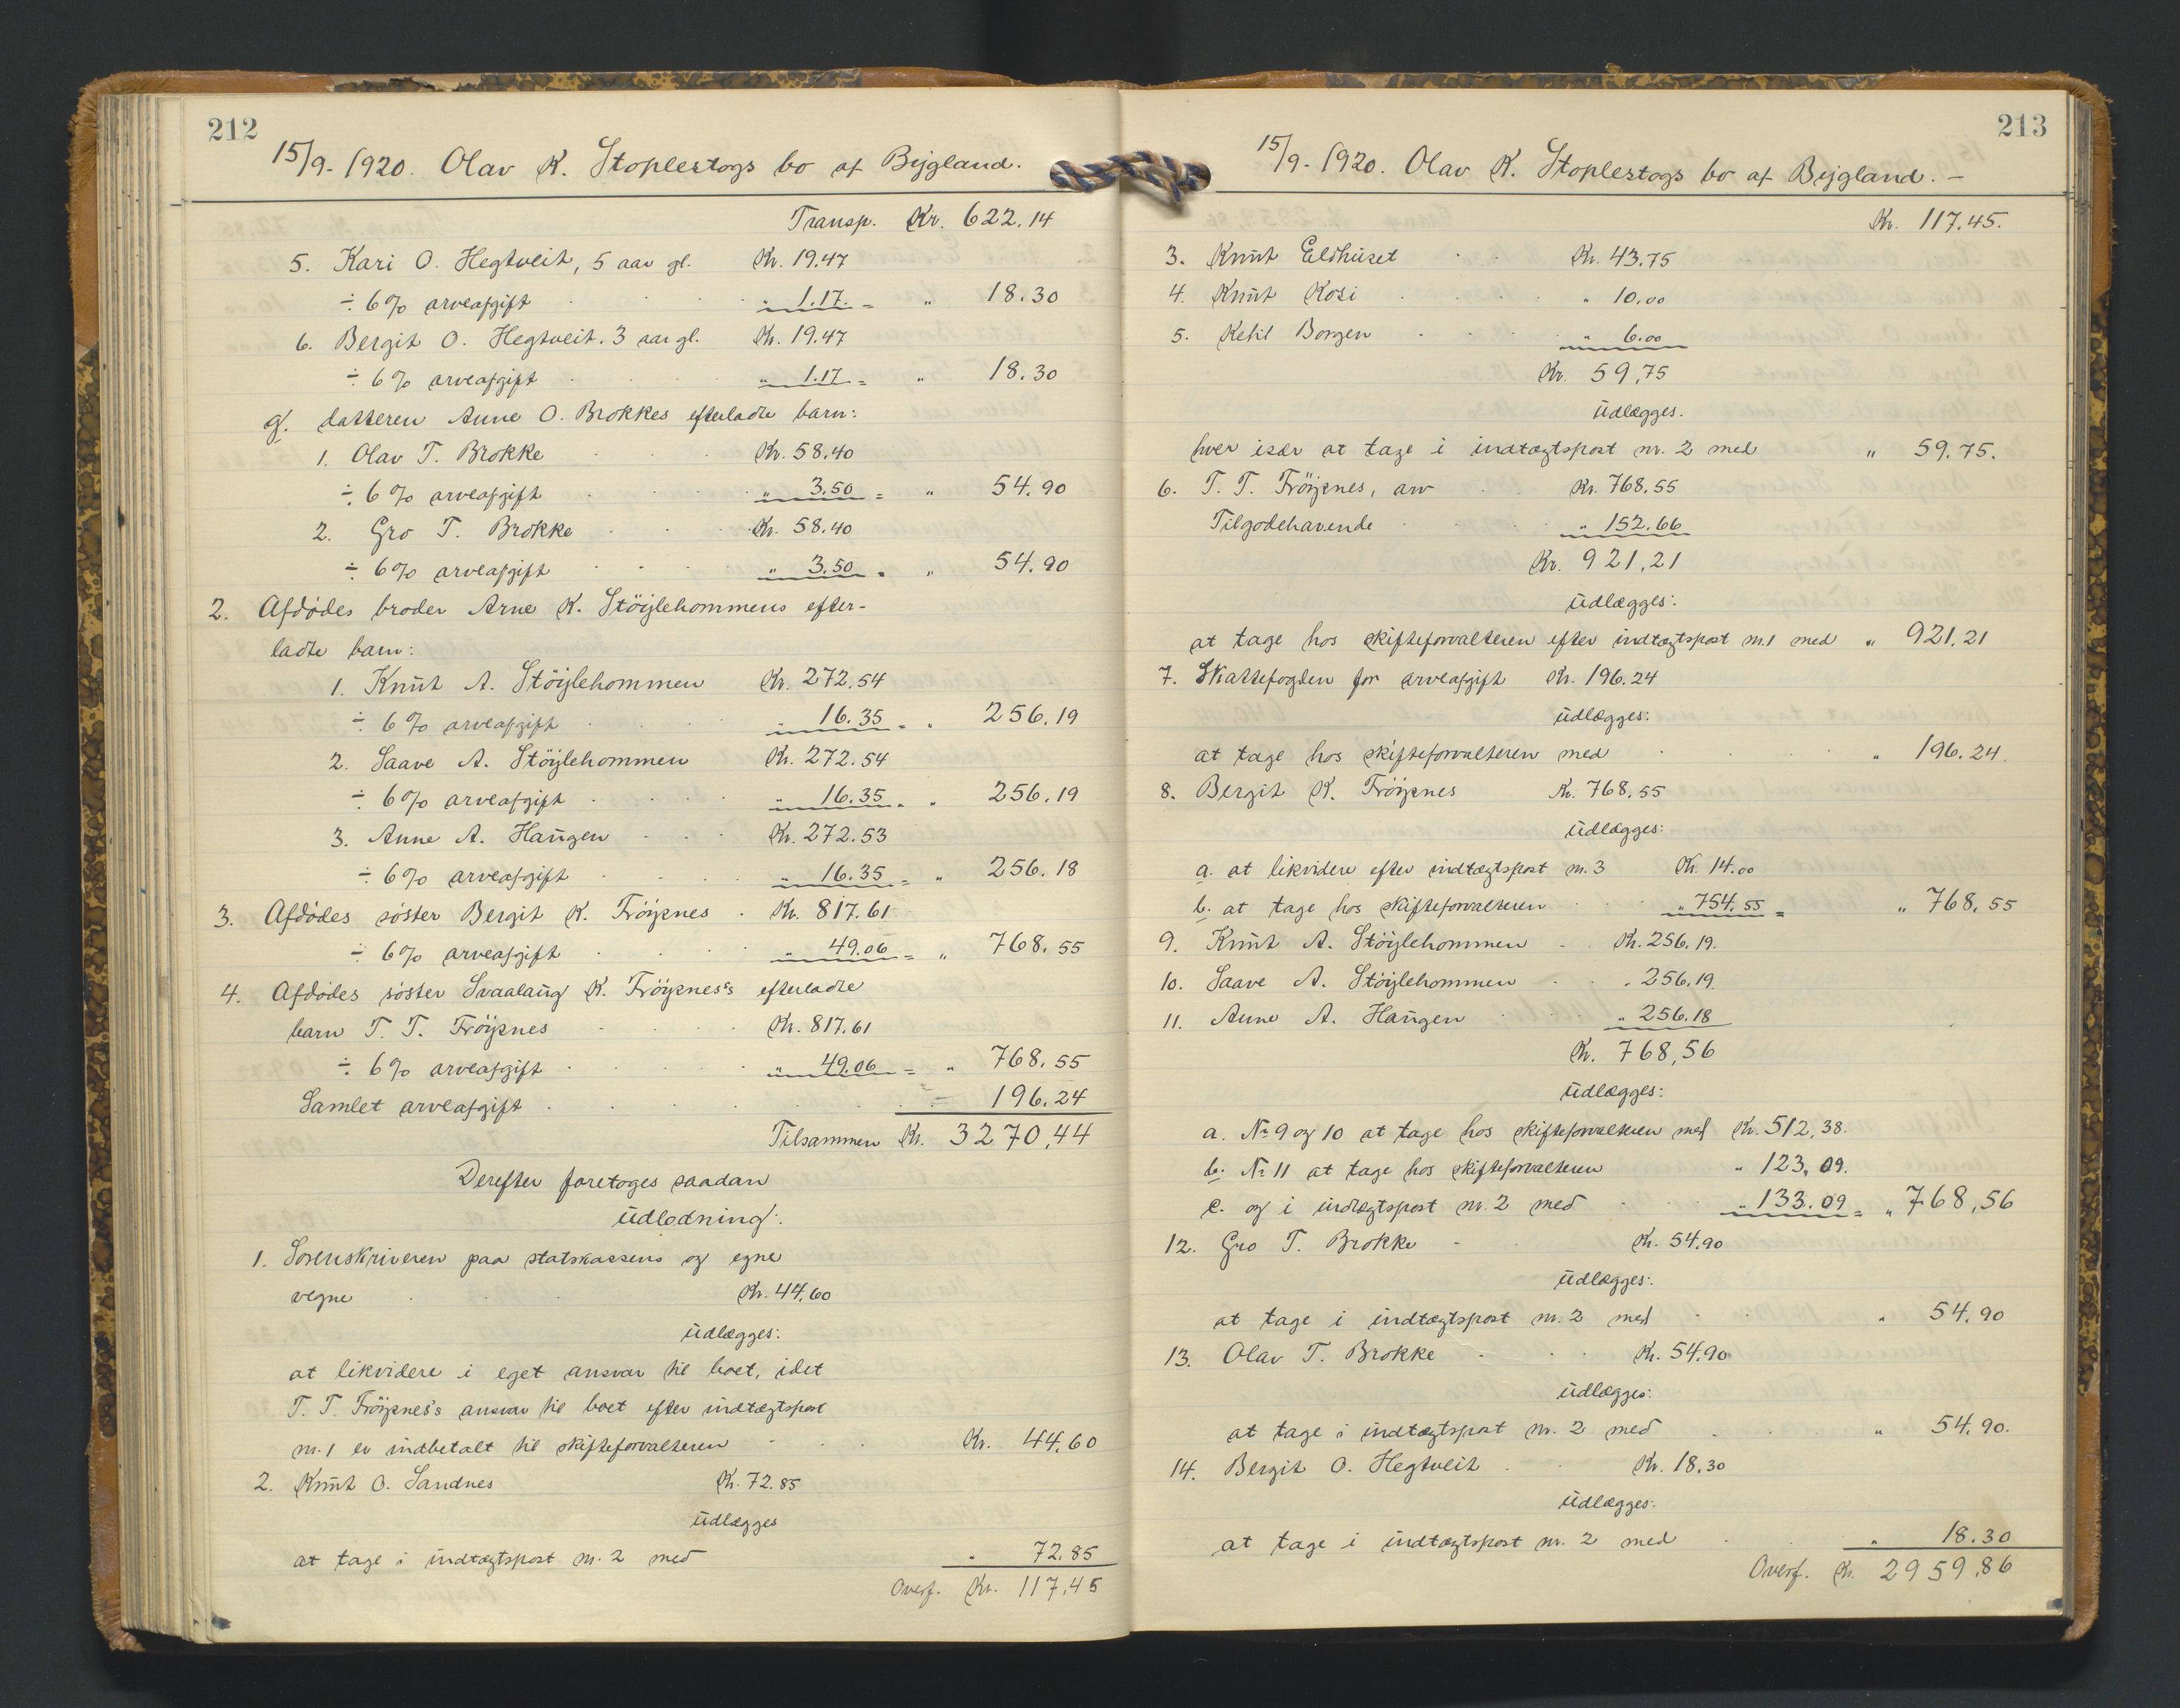 212
15/9-1920. Olav K. Stoplestogs bo af Bygland.
Transp. Kr. 622.14
5. Kari O. Hegtveit, 5 aar gl. Kr. 19.47
÷ 6% arveafgift " 1.17 = " 18.30
6. Bergit O. Hegtveit. 3 aar gl. Kr. 19.47
÷ 6% arveafgift " 1.17 = " 18.30
g. datteren Anne O. Brokkes efterladte barn:
1. Olav T. Brokke Kr. 58.40
÷ 6% arveafgift " 3.50 = " 54.90
2. Gro T. Brokke Kr. 58.40
÷ 6% arveafgift " 3.50 = " 54.90
2. Afdödes broder Arne K. Stöylehommens efter-
ladte barn:
1. Knut A. Stöylehommen Kr. 272.54
÷ 6% arveafgift " 16.35 = " 256.19
2. Saave A. Stöylehommen Kr. 272.54
÷ 6% arveafgift " 16.35 = " 256.19
3. Anne A. Haugen Kr. 272.53
÷ 6% arveafgift " 16.35 = " 256.18
3. Afdödes söster Bergit K. Fröysnes Kr. 817.61
÷ 6% arveafgift " 49.06 = " 768.55
4. Afdödes söster Svaalaug K. Fröysnes's efterladte
barn T. T. Fröysnes Kr. 817.61
÷ 6% arveafgift " 49.06 = " 768.55
Samlet arveafgift = 196.24
Tilsammen Kr. 3270,44
Derefter foretoges saadan
udlodning:
1. Sorenskriveren paa statskassens og egne
vegne Kr. 44.60
udlægges:
at likvidere i eget ansvar til boet, idet
T. T. Fröysnes's ansvar til boet efter indtægtspost
nr. 1 er indbetalt til skifteforvalteren Kr. 44.60
2. Knut O. Sandnes Kr. 72.85
udlægges
at tage i indtægtspost nr. 2 med " 72.85
Overf. Kr. 117,45
213
15/9-1920. Olav K. Stoplestogs bo af Bygland. –
Kr. 117.45.
3. Knut Eldhuset Kr. 43.75
4. Knut Kosi " 10.00
5. Ketil Borgen " 6.00
Kr. 59,75
udlægges.
hver især at tage i indtægtspost nr. 2 med " 59.75.
6. T. T. Fröysnes, arv Kr. 768.55
Tilgodehavende " 152.66
Kr. 921,21
udlægges:
at tage hos skifteforvalteren efter indtægtspost nr. 1 med " 921.21
7. Skattefogden for arveafgift Kr. 196.24
udlægges:
at tage hos skifteforvalteren med " 196.24.
8. Bergit K. Fröysnes Kr. 768.55
udlægges:
a. at likvidere efter indtægtspost nr. 3 Kr. 14.00
b. at tage hos skifteforvalteren " 754.55 = " 768,55
9. Knut A. Stöylehommen Kr. 256.19.
10. Saave A. Stöylehommen " 256.19.
11. Anne A. Haugen " 256.18
Kr. 768,56
udlægges:
a. No 9 og 10 at tage hos skifteforvalteren med Kr. 512,38.
b. No 11 at tage hos skifteforvalteren " 123,09.
c. og i indtægtspost nr. 2 med " 133.09 = " 768,56
12. Gro T. Brokke Kr. 54.90
udlægges:
at tage i indtægtspost nr. 2 med " 54.90
13. Olav T. Brokke Kr. 54.90
udlægges:
at tage i indtægtspost nr. 2 med " 54.90.
14. Bergit O. Hegtveit Kr. 18.30
udlægges:
at tage i indtægtspost nr. 2 med " 18.30
Overf. Kr. 2959,86